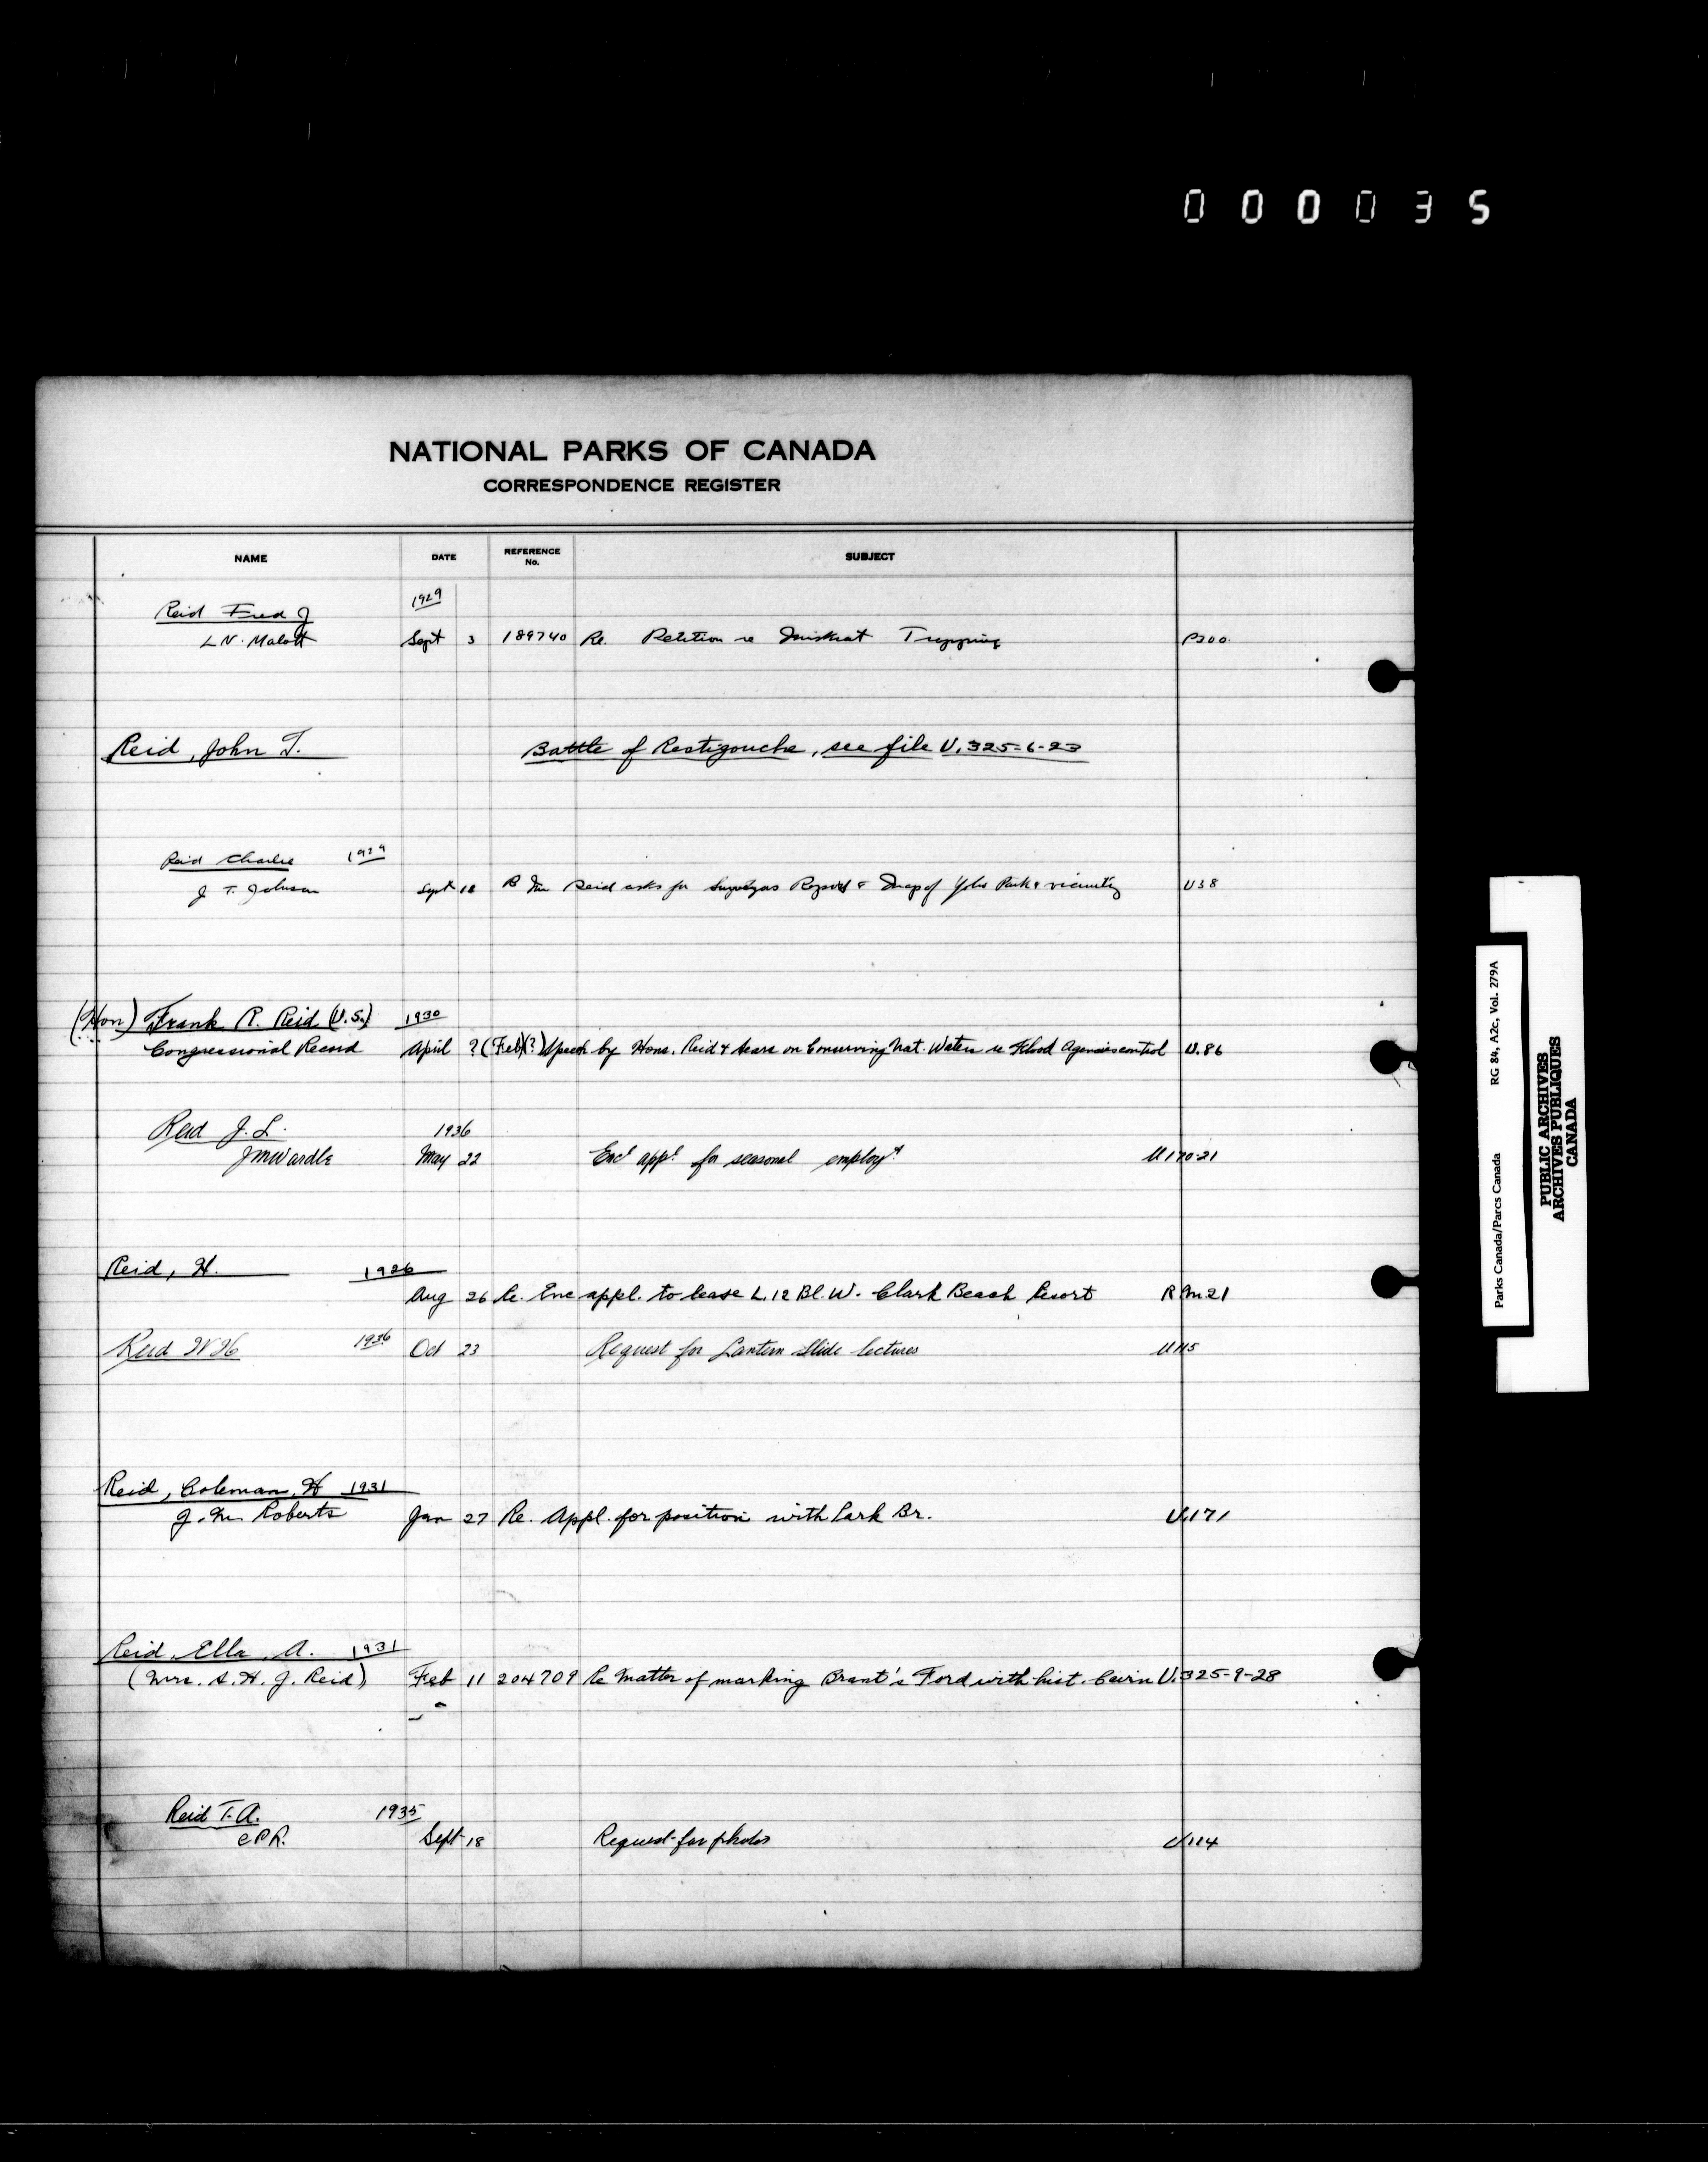 000035
NATIONAL PARKS OF CANADA
CORRESPONDENCE REGISTER
NAME DATE REFERENCE No. SUBJECT
Reid Fred J 1929
L N. Malott Sept 3 189740 Re. Petition re Muskrat Trapping P300.
Reid, John T. Battle of Restigouche, see file U.325-6-23
Reid Charlie 1929
J T. Johnson Sept 12 Reid asks for Surveyors Report & Map of Yoho Park & vicinity U38
(Hon) Frank R. Reid (U.S.) 1930
Congressional Record April ? (Feb)(?) Speech by Hons. Reid & Sears on Conserving Nat. Waters re Flood Agencies control U.86
Reid J. L. 1936
J M Wardle May 22 Encl appl. for seasonal employt U170-21
Reid, H. 1926
Aug 26 Re. Enc appl. to lease L.12 Bl. W. Clark Beach Resort R M.21
Reid W H 1936 Oct 23 Request for Lantern Slide lectures U115
Reid, Coleman, H 1931
J. M. Roberts Jan 27 Re. Appl. for position with Park Br. U.171
Reid, Ella A. 1931
(Mrs. S. H. J. Reid) Feb 11 204709 Re Matter of marking Brant's Ford with hist. Cairn U.325-9-28
Reid T. A. 1935
C P R. Sept 18 Request for photos U114
Parks Canada/Parcs Canada RG 84, A2c, Vol. 279A
PUBLIC ARCHIVES
ARCHIVES PUBLIQUES
CANADA